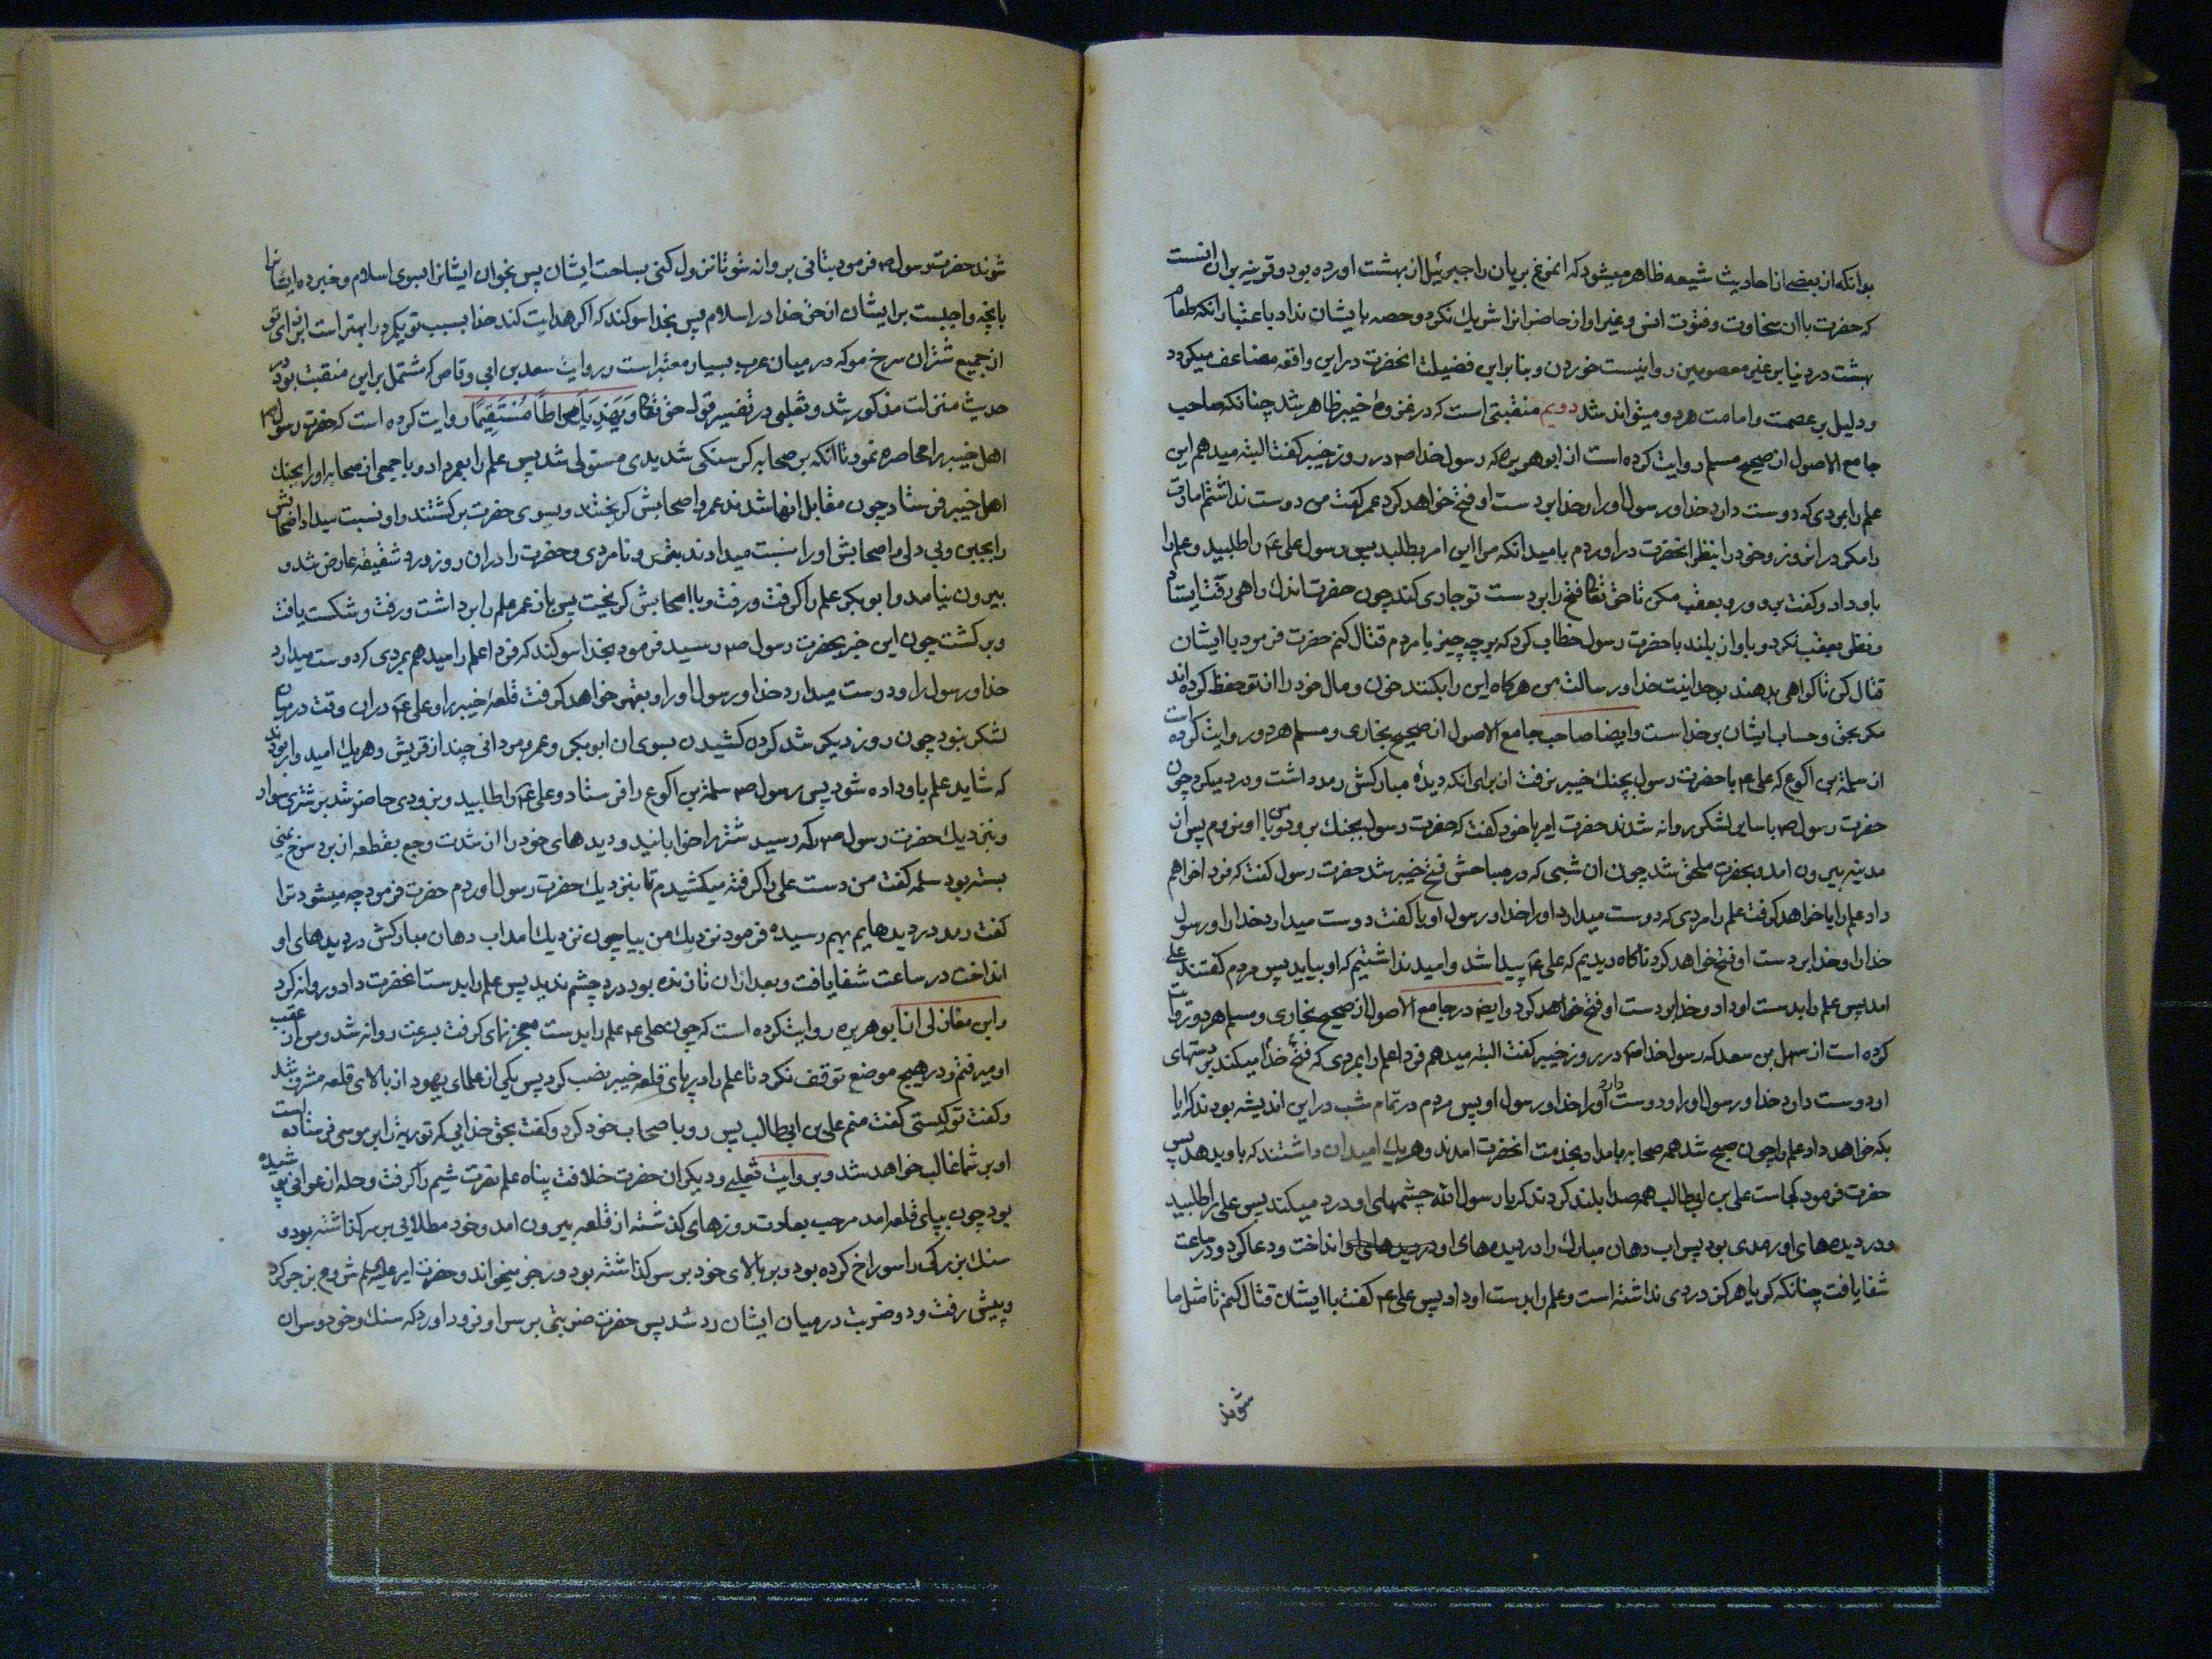 بدانکه از بعضی از احادیث شیعه ظاهر میشود که انمرغ بریان را جبرئیل از بهشت اورده بود و قرینه بر ان انست
که حضرت باان سخاوت و فتوت انس و غیر او از حاضرانرا شریک نکرد و حصه بایشان نداد باعتبار انکه طعام
بهشت در دنیا بر غیر معصومین روا نیست خوردن و بنابراین فضیلت انحضرت در این واقعه مضاعف میکردد
و دلیل بر عصمت و امامت هر دو میتواند شد دویم منقبتی است که در غزوهٔ خیبر ظاهر شد چنانکه صاحب
جامع الاصول از صحیح مسلم روایت کرده است از ابوهریره که رسول خدا ص در روز خیبر کفت البته میدهم این
علم را بمردی که دوست دارد خدا و رسول او را و خدا بر دست او فتح خواهد کرد عمر کفت من دوست نداشتم امارت
را مکر در انروز و خود را بنظر انحضرت در اوردم بامید انکه مرا این امر بطلبد پس رسول علی ع را طلبید و علم را
باو داد و کفت برو و رو بعقب مکن تا حق تعالی فتح را بر دست تو جاری کند چون حضرت اندک راهی رفت ایستاد
و نظر بعقب نکرد و باواز بلند با حضرت رسول خطاب کرد که بر چه چیز با مردم قتال کنم حضرت فرمود با ایشان
قتال کن تا کواهی بدهند بوحدانیت خدا و رسالت من هرکاه این را بکنند خون و مال خود را از تو حفظ کرده اند
مکر بحق و حساب ایشان بر خداست و ایضا صاحب جامع الاصول از صحیح بخاری و مسلم هر دو روایت کرده است
از سلمة بن اکوع که علی ع با حضرت رسول بجنک خیبر نرفت از برای انکه دیدهٔ مبارکش رمد داشت و درد میکرد چون
حضرت رسول ص با سایر لشکر روانه شدند حضرت امیر با خود کفت که حضرت رسول بجنک برود و من با او نروم پس از
مدینه بیرون امد و بحضرت ملحق شد چون ان شبی که در صباحش فتح خیبر شد حضرت رسول کفت که فردا خواهم
داد علم را یا خواهد کرفت علم را مردی که دوست میدارد او را خدا و رسول او یا کفت دوست میدارد خدا را و رسول
خدا را و خدا بر دست او فتح خواهد کرد ناکاه دیدیم که علی ع پیدا شد و امید نداشتیم که او بیاید پس مردم کفتند علی
امد پس علم را بدست او داد و خدا بر دست او فتح خواهد کرد و ایضا در جامع الاصول از صحیح بخاری و مسلم هر دو روایت
کرده است از سهل بن سعد که رسول خدا ص در روز خیبر کفت البته میدهم فردا علم را بمردی که فتح خدا میکند بر دستهای
او دوست دارد خدا و رسول او را و دوست دارد او را خدا و رسول او پس مردم در تمام شب در این اندیشه بودند که ایا
بکه خواهد داد علم را چون صبح شد همه صحابه بامداد بخدمت انحضرت امدند و هریک امید ان داشتند که باو بدهد پس
حضرت فرمود کجاست علی بن ابی طالب همه صدا بلند کردند که یا رسول الله چشمهای او درد میکند پس علی را طلبید
و در دیده های او رمدی بود پس اب دهان مبارک را در دیده های او انداخت و دعا کرد و در ساعت
شفا یافت چنانکه کویا هرکز دردی نداشته است و علم را بدست او داد پس علی ع کفت با ایشان قتال کنم تا مثل ما
شوند
شوند حضرت رسول ص فرمود بتانی بروانه شو تا نزول کنی بساحت ایشان پس بخوان ایشانرا بسوی اسلام و خبر ده ایشانرا
بانچه واجبست بر ایشان از حق خدا در اسلام پس بخدا سوکند که اکر هدایت کند خدا بسبب تو یکمرد را بهتر است از برای تو
از جمیع شتران سرخ مو که در میان عرب بسیار معتبر است و روایت سعد بن ابی وقاص که مشتمل بر این منقبت بود در
حدیث منزلت مذکور شد و ثعلبی در تفسیر قول حق تعالی وَيَهْدِيَكَ صِرَاطًا مُسْتَقِيمًا روایت کرده است که حضرت رسول ص
اهل خیبر را محاصره نمود تا انکه بر صحابه کرسنکی شدیدی مستولی شد پس علم را بعمر داد و با جمعی از صحابه او را بجنک
اهل خیبر فرستاد چون مقابل انها شدند عمر و اصحابش کریختند و بسوی حضرت برکشتند و او نسبت میداد اصحابش
را بجبن و بی دلی و اصحابش او را نسبت میدادند بترس و نامردی و حضرت را در ان روز درد شقیقه عارض شد و
بیرون نیامد و ابوبکر علم را کرفت و رفت و با اصحابش کریخت پس باز عمر علم را برداشت و رفت و شکست یافت
و برکشت چون این خبر بحضرت رسول ص رسید فرمود بخدا سوکند که فردا علم را میدهم بمردی که دوست میدارد
خدا و رسول را و دوست میدارد خدا و رسول او را و بقهر خواهد کرفت قلعهٔ خیبر را و علی ع در ان وقت در میان
لشکر نبود چون روز دیکر شد کردن کشیدن بسوی ان ابوبکر و عمر و مردانی چند از قریش و هریک امیدوار بودند
که شاید علم باو داده شود پس رسول ص سلمة بن اکوع را فرستاد و علی ع را طلبید و بزودی حاضر شد بر شتری سوار
و بنزدیک حضرت رسول ص که رسید شتر را خوابانید و دیدهای خود را از شدت وجع بقطعه از برد سرخ یمنی
بسته بود سلمه کفت من دست علی را کرفته میکشیدم تا بنزدیک حضرت رسول اوردم حضرت فرمود چه میشود ترا
کفت رمد در دیدهایم بهم رسیده فرمود نزدیک من بیا چون نزدیک امد اب دهان مبارکش در دیدهای او
انداخت در ساعت شفا یافت و بعد از ان تا زنده بود درد چشم ندید پس علم را بدست انحضرت داد و روانه کرد
و ابن مغازلی از ابوهریره روایت کرده است که چون علی ع علم را بدست معجزنمای کرفت بسرعت روانه شد و من از عقب
او میرفتم و در هیچ موضع توقف نکرد تا علم را در پای قلعه خیبر نصب کرد پس یکی از علمای یهود از بالای قلعه مشرف شد
و کفت تو کیستی کفت منم علی بن ابی طالب پس رو با صحاب خود کرد و کفت بحق خدایی که توریة را بر موسی فرستاده است
او بر شما غالب خواهد شد و بروایت ثعلبی و دیکران حضرت خلافت پناه علم نصرت شیم را کرفت و حله ارغوانی پوشیده
بود چون بپای قلعه امد مرحب بعادت روزهای کذشته از قلعه بیرون امد و خود مطلایی بر سر کذاشته بود و
سنک بزرکی را سوراخ کرده بود و بر بالای خود بر سر کذاشته بود و رجز میخواند و حضرت امیر علیه السلم شروع برجز کرد
و پیش رفت و دو ضربت در میان ایشان رد شد پس حضرت ضربتی بر سر او فرود اورد که سنک و خود و سر ان